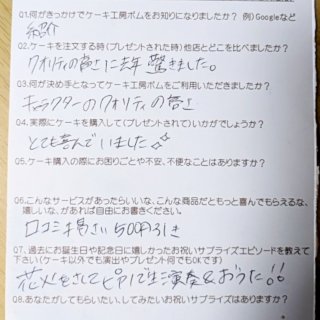 Q1.何がきっかけでケーキ工房ボムをお知りになりましたか？ 例）Googleなど
紹介
Q2.ケーキを注文する時（プレゼントされた時）他店とどこと比べましたか？
クオリティの高さに去年驚きました。
Q3.何が決め手となってケーキ工房ボムをご利用いただきましたか？
キャラクターのクオリティの高さ
Q4.実際にケーキを購入して（プレゼントされて）いかがでしょうか？
とても喜んでいました
Q5.ケーキ購入の際にお困りごとや不安、不便なことはありますか？
Q6.こんなサービスがあったらいいな、こんな商品だともっと喜んでもらえるな、
嬉しいな、があれば自由にお書きください。
口コミ書さい500円引き
Q7.過去にお誕生日や記念日に嬉しかったお祝いサプライズエピソードを教えて
下さい（ケーキ以外でも演出やプレゼント何でもOKです）
花火をさしてピアノで生演奏&おうた!!
Q8.あなたがしてもらいたい、してみたいお祝いサプライズはありますか？